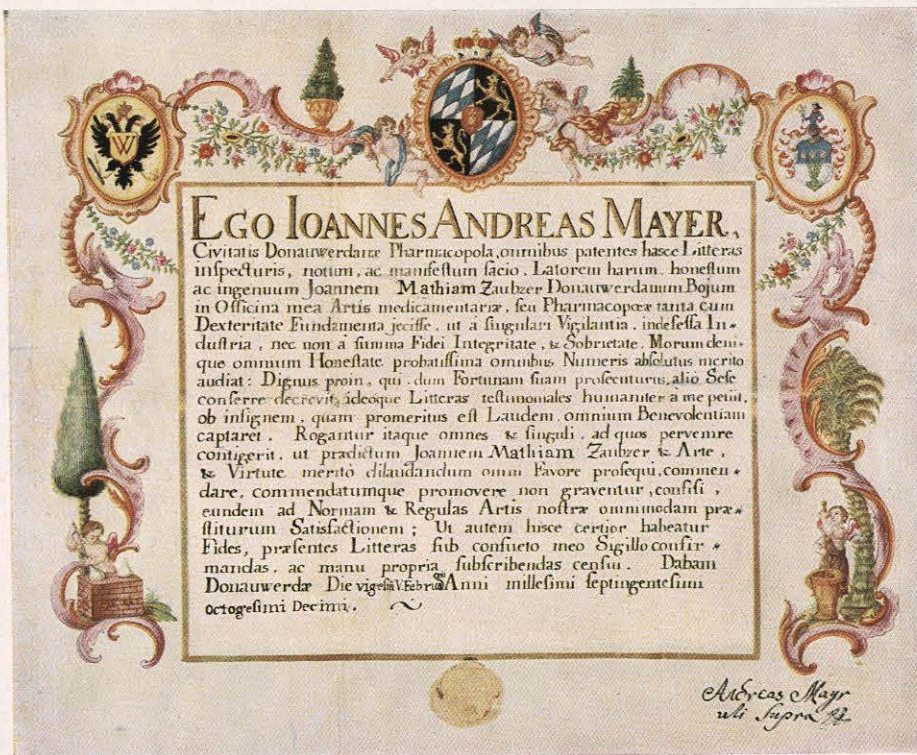 W
EGO IOANNES ANDREAS MAYER,
Civitatis Donauwerdanæ Pharmacopola, omnibus patentes hasce Litteras
inspecturis, notum, ac manifestum facio, Latorem harum, honestum
ac ingenuum Joannem Mathiam Zaubzer Donauwerdanum Bojum
in Officina mea Artis medicamentariæ, seu Pharmacopœæ tanta cum
Dexteritate Fundamenta jecisse, ut à singulari Vigilantia, indefessa In-
dustria, nec non à summa Fidei Integritate, & Sobrietate, Morum deni-
que omnium Honestate probatissima omnibus Numeris absolutus merito
audiat: Dignus proin, qui, dum Fortunam suam prosecuturus, aliò Sese
conferre decrevit, ideoque Litteras testimoniales humaniter à me petiit,
ob insignem, quam promeritus est Laudem, omnium Benevolentiam
captaret. Rogantur itaque omnes & singuli, ad quos pervenire
contigerit, ut prædictum Joannem Mathiam Zaubzer & Arte,
& Virtute meritò dilaudandum omni Favore prosequi, commen-
dare, commendatumque promovere non graventur, confisi,
eundem ad Normam & Regulas Artis nostræ ommimodam præ-
stiturum Satisfactionem; Ut autem hisce certior habeatur
Fides, præsentes Litteras sub consueto meo Sigillo confir-
mandas, ac manu propria subscribendas censui. Dabam
Donauwerdæ Die V. Anni millesimi septingentesimi
octogesimi Decimi.
Andreas Mayr
uti supra